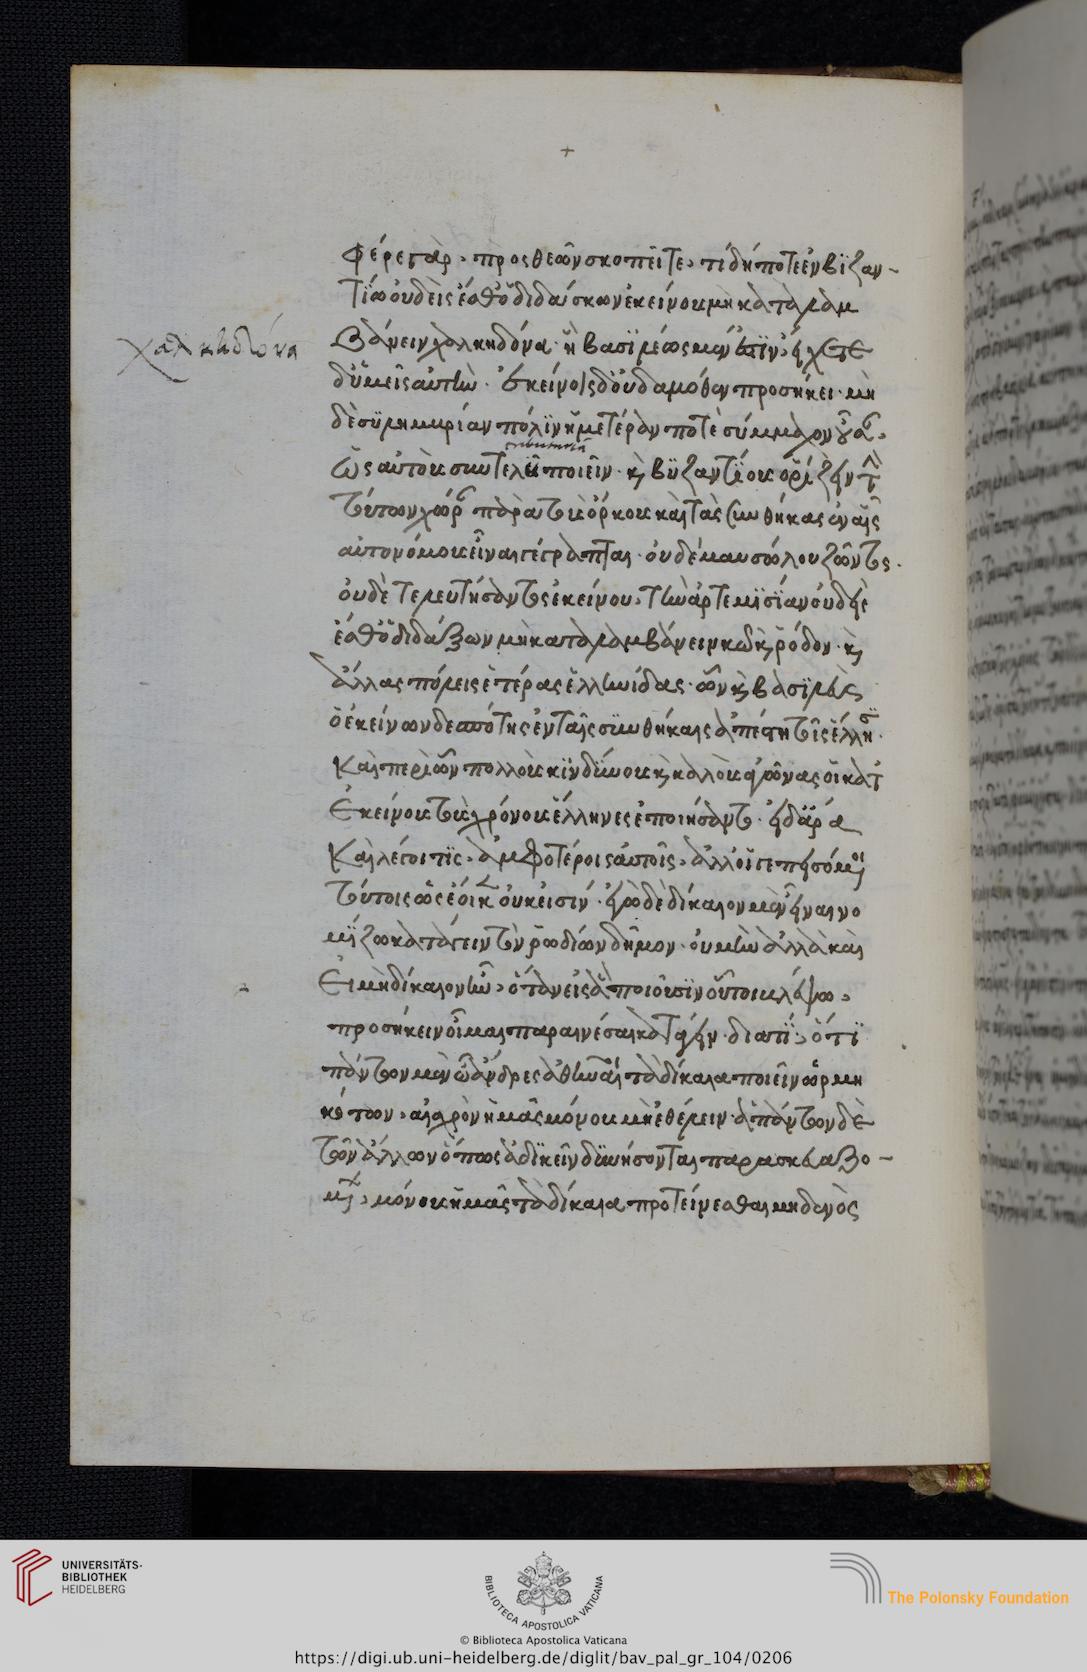 +
φέρε γὰρ, πρὸς θεῶν σκοπεῖτε, τί δή ποτε ἐν βυζαν-
τίῳ οὐδείς ἐσθ' ὁ διδάσκων ἐκείνους μὴ καταλαμ
βάνειν χαλκηδόνα· ἢ βασιλέως μάν ἐστϊν, ἤχετε
χαλκηδόνα
δ' ὑμεῖς αὐτὴν· ἐκείνοις δ' οὐδαμόθεν προσήκει· μη
δὲ σϋλημυρίαν πόλϊν ἡμετέραν ποτὲ σύμμαχον
ὡς αὐτοὺς συντελῆ ποιεῖν· κỳ βϋζαντΐους ὁρίζειν τ
τούτων χώρ παρὰ τοὺς ὅρκους καὶ τὰς συνθήκας ἐν αἷς
αὐτονόμους εἶναι γέγραπται· οὐδὲ μαυσώλου ζῶντος·
οὐδὲ τελευτήσαντος ἐκείνου, τὴν ἀρτεμϊσίαν οὐδείς
ἐσθ' ὁ διδάξων μὴ καταλαμβάνειν κῶ κỳ ῥόδον· κỳ
ἄλλας πόλεις ἑτέρας ἑλληνίδας· ὧν κỳ βασϊλεὺς
ὁ ἐκείνων δεσπότης ἐν ταῖς συνθήκαις ἀπέστη τοῖς ἕλλησϊ·
καὶ περὶ ὧν πολλοὺς κϊνδύνους κỳ καλοὺς ἀγῶνας οἱ κατ
ἐκείνους τοὺς χρόνους ἕλληνες ἐποιήσαντο· εἰ δ' ἄρα
καὶ λέγοι τϊς, ἀμφοτέροις αὐτοῖς, ἀλλ' οἵ γε πεισόμενοι
τούτοις ὡς ἔοικεν οὐκ εἰσίν· ἐγὼ δὲ δίκαιον μὲν εἶναι νο
μΐζω κατάγειν τὸν ῥωδίων δῆμον· οὐ μὴν ἀλλὰ καὶ
εἰ μὴ δίκαιον ἦν, ὅταν εἰς ἃ ποιοῦσϊν οὗτοι βλέψω,
προσήκειν οἶμαι παραινέσαι κατάγειν· διατΐ; ὅτϊ
πάντων μὲν ὦ ἄνδρες ἀθηναῖοι τὰ δίκαια ποιεῖν ὡρμη
κότων, αἰσχρὸν ἡμᾶς μόνους μὴ ἐθέλειν· ἁπάντων δὲ
τῶν ἄλλων ὅπως ἀδϊκεῖν δυνήσονται παρασκευαζο-
μένων, μόνους ἡμᾶς τὰ δίκαια προτείνεσθαι μηδενὸς
UNIVERSITÄTS-
BIBLIOTHEK
HEIDELBERG
BIBLIOTECA APOSTOLICA VATICANA
The Polonsky Foundation
© Biblioteca Apostolica Vaticana
https://digi.ub.uni-heidelberg.de/diglit/bav_pal_gr_104/0206